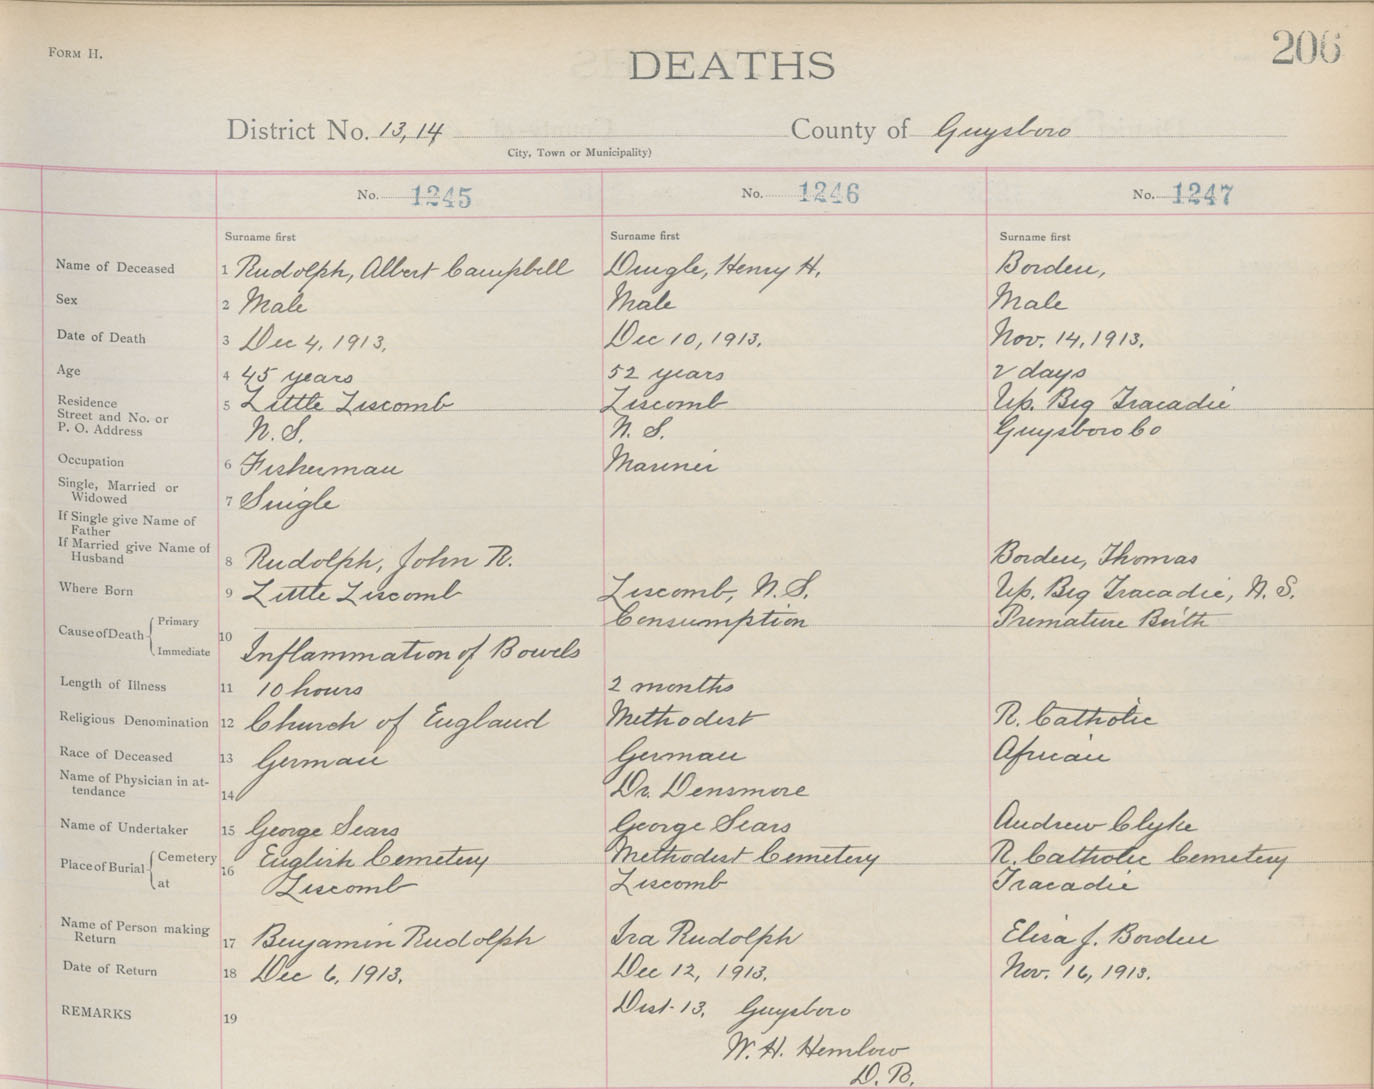 FORM H.
206
DEATHS
District No. 13, 14
County of Guysboro
City, Town or Municipality)
No. 1245
No. 1246
No. 1247
Surname first
Surname first
Surname first
Name of Deceased
1 Rudolph, Albert Campbell
Dingle, Henry H.
Borden,
Sex
2 Male
Male
Male
Date of Death
3 Dec 4, 1913.
Dec 10, 1913.
Nov. 14, 1913.
Age
4 45 years
52 years
2 days
Residence
Street and No. or
P. O. Address
5 Little Liscomb
N. S.
Liscomb
N. S.
Up. Big Tracadie
Guysboro Co
Occupation
6 Fisherman
Mariner
Single, Married or
Widowed
7 Single
If Single give Name of
Father
If Married give Name of
Husband
8 Rudolph, John R.
Borden, Thomas
Where Born
9 Little Liscomb
Liscomb, N. S.
Up. Big Tracadie, N. S.
Cause of Death
Primary
Immediate
10
Inflammation of Bowels
Consumption
Premature Birth
Length of Illness
11 10 hours
2 months
Religious Denomination
12 Church of England
Methodist
R. Catholic
Race of Deceased
13 German
German
African
Name of Physician in at-
tendance
14
Dr. Densmore
Name of Undertaker
15 George Sears
George Sears
Andrew Clyke
Place of Burial
Cemetery
at
16
English Cemetery
Liscomb
Methodist Cemetery
Liscomb
R. Catholic Cemetery
Tracadie
Name of Person making
Return
17 Benjamin Rudolph
Ira Rudolph
Elisa J. Borden
Date of Return
18 Dec 6, 1913.
Dec 12, 1913.
Nov. 16, 1913.
REMARKS
19
Dist. 13. Guysboro
W. H. Hemlow
D. R.